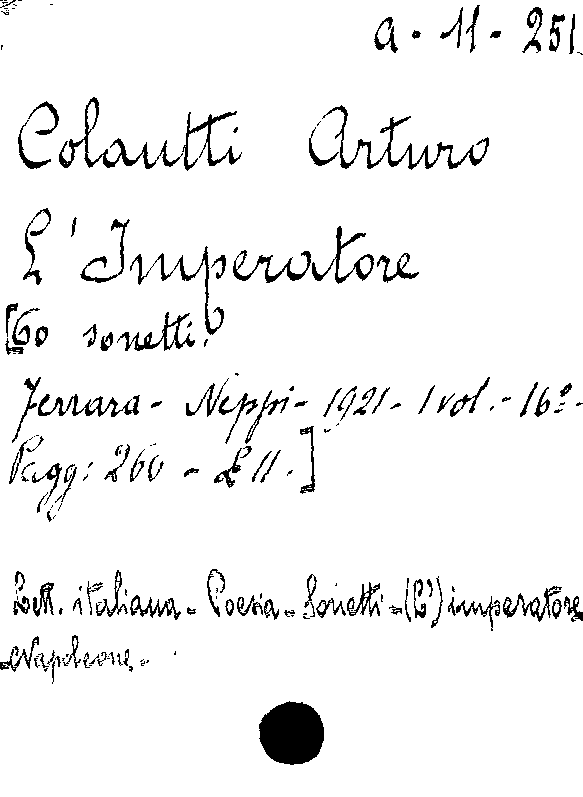 a - 11 - 251
Colautti Arturo
L'Imperatore
[60 sonetti.
Ferrara - Neppi - 1921 - 1 vol. - 16º -
Pagg: 260 - £ 11 - ]
Lett. italiana - Poesia - Sonetti - (L') imperatore
- Napoleone -